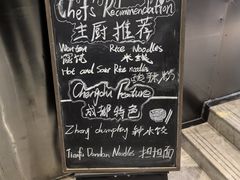 Chef's Recommendation
主厨推荐
Wonton Rice Noodles
馄饨 米线
Hot and Sour Rice noodles
酸辣粉
Chengdu Feature
成都特色
Zhong dumpling 钟水饺
Tianfu Dandan Noodles 担担面